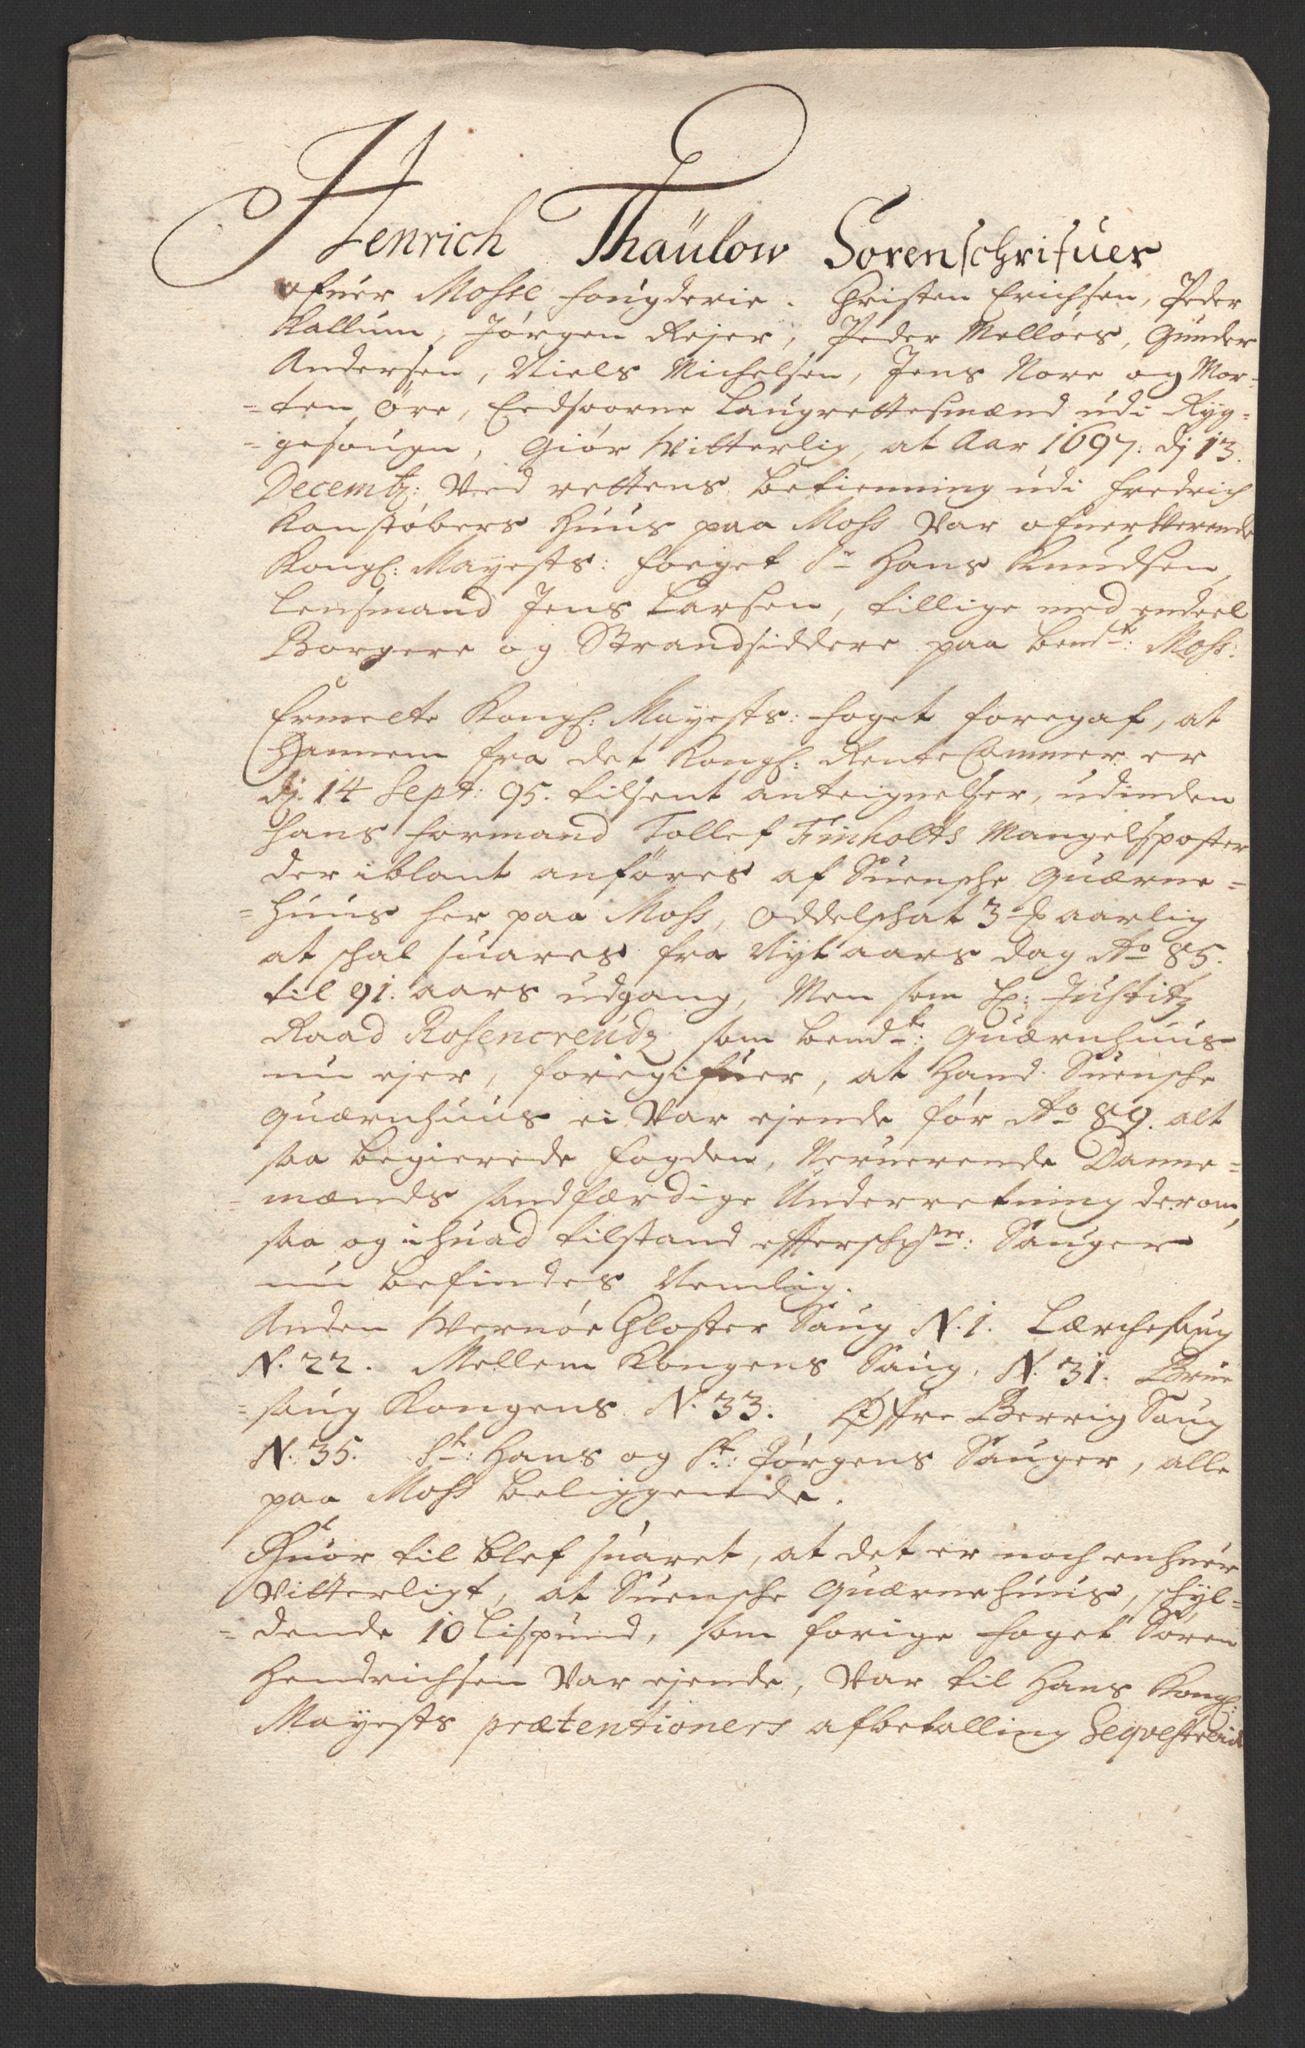 Henrich Thaülow Sorenschrifuer
ofuer Mosse fougderie. Christen Erichsen, Peder
Kallum, Jørgen Rejer, Peder Melløes, Gunder
Andersen, Niels Michelsen, Jens Nore og Mor-
-ten Øre, Eedsoorne Laugrettesmænd udi Ryg-
-gesougn, Giør Witterlig, at Aar 1697. dj 13.
Decembr: Ved rettens betienning udi Fredrich
Kanstøbers Huus paa Moss Var ofuerwerende
Kongl: Mayests: Foeget Sr Hans Knudsen,
Lensmand Jens Larsen, tillige med endeel
Borgere og Strandsiddere paa bemte: Moss:
Ermelte Kongl: Mayests: foget foregaf, at
Hannem fra det Kongl: Rente Cammer er
dj. 14 Sept: 95. tilsent anteignelser, udinden
hans formand Tollef Finholts Mangelsposter
der iblant anføres af Suensche Quærne-
-huus her paa Moss, Oddelschat 3 aarlig
at schal suares fra Nyt aars dag Ao 85.
til 91. aars udgang, Men som Hr: Justitz
Raad Rosencreudz, som bemdte: Quærnhuus
nu ejer, foregifuer, at Hand Suensche
Quærnhuus ei Var ejende før Ao 89. alt
saa begierede fogden, Nerverende Danne-
-mænds sandfærdige Underretning derom,
saa og i huad tilstand effterschrne: Sauger
nu befindes Nemlig.
Anden Wernøe Closter Saug N. 1. Lærchesaug
N. 22. Mellem Kongens Saug. N. 31. Brue
-saug Kongens N. 33. Østre Berrig Saug
N. 35. St: Hans og St: Jørgens Sauger, alle
paa Moss beliggende.
Huor til blef suaret, at det er noch enhuer
Vitterligt, at Suensche Quærnehuus, schyl-
-dende 10 Lispund, som forige foget Søren
Hendrichsen Var ejende, Var til Hans Kongl:
Mayests prætentioners afbetalling Seqvestreid